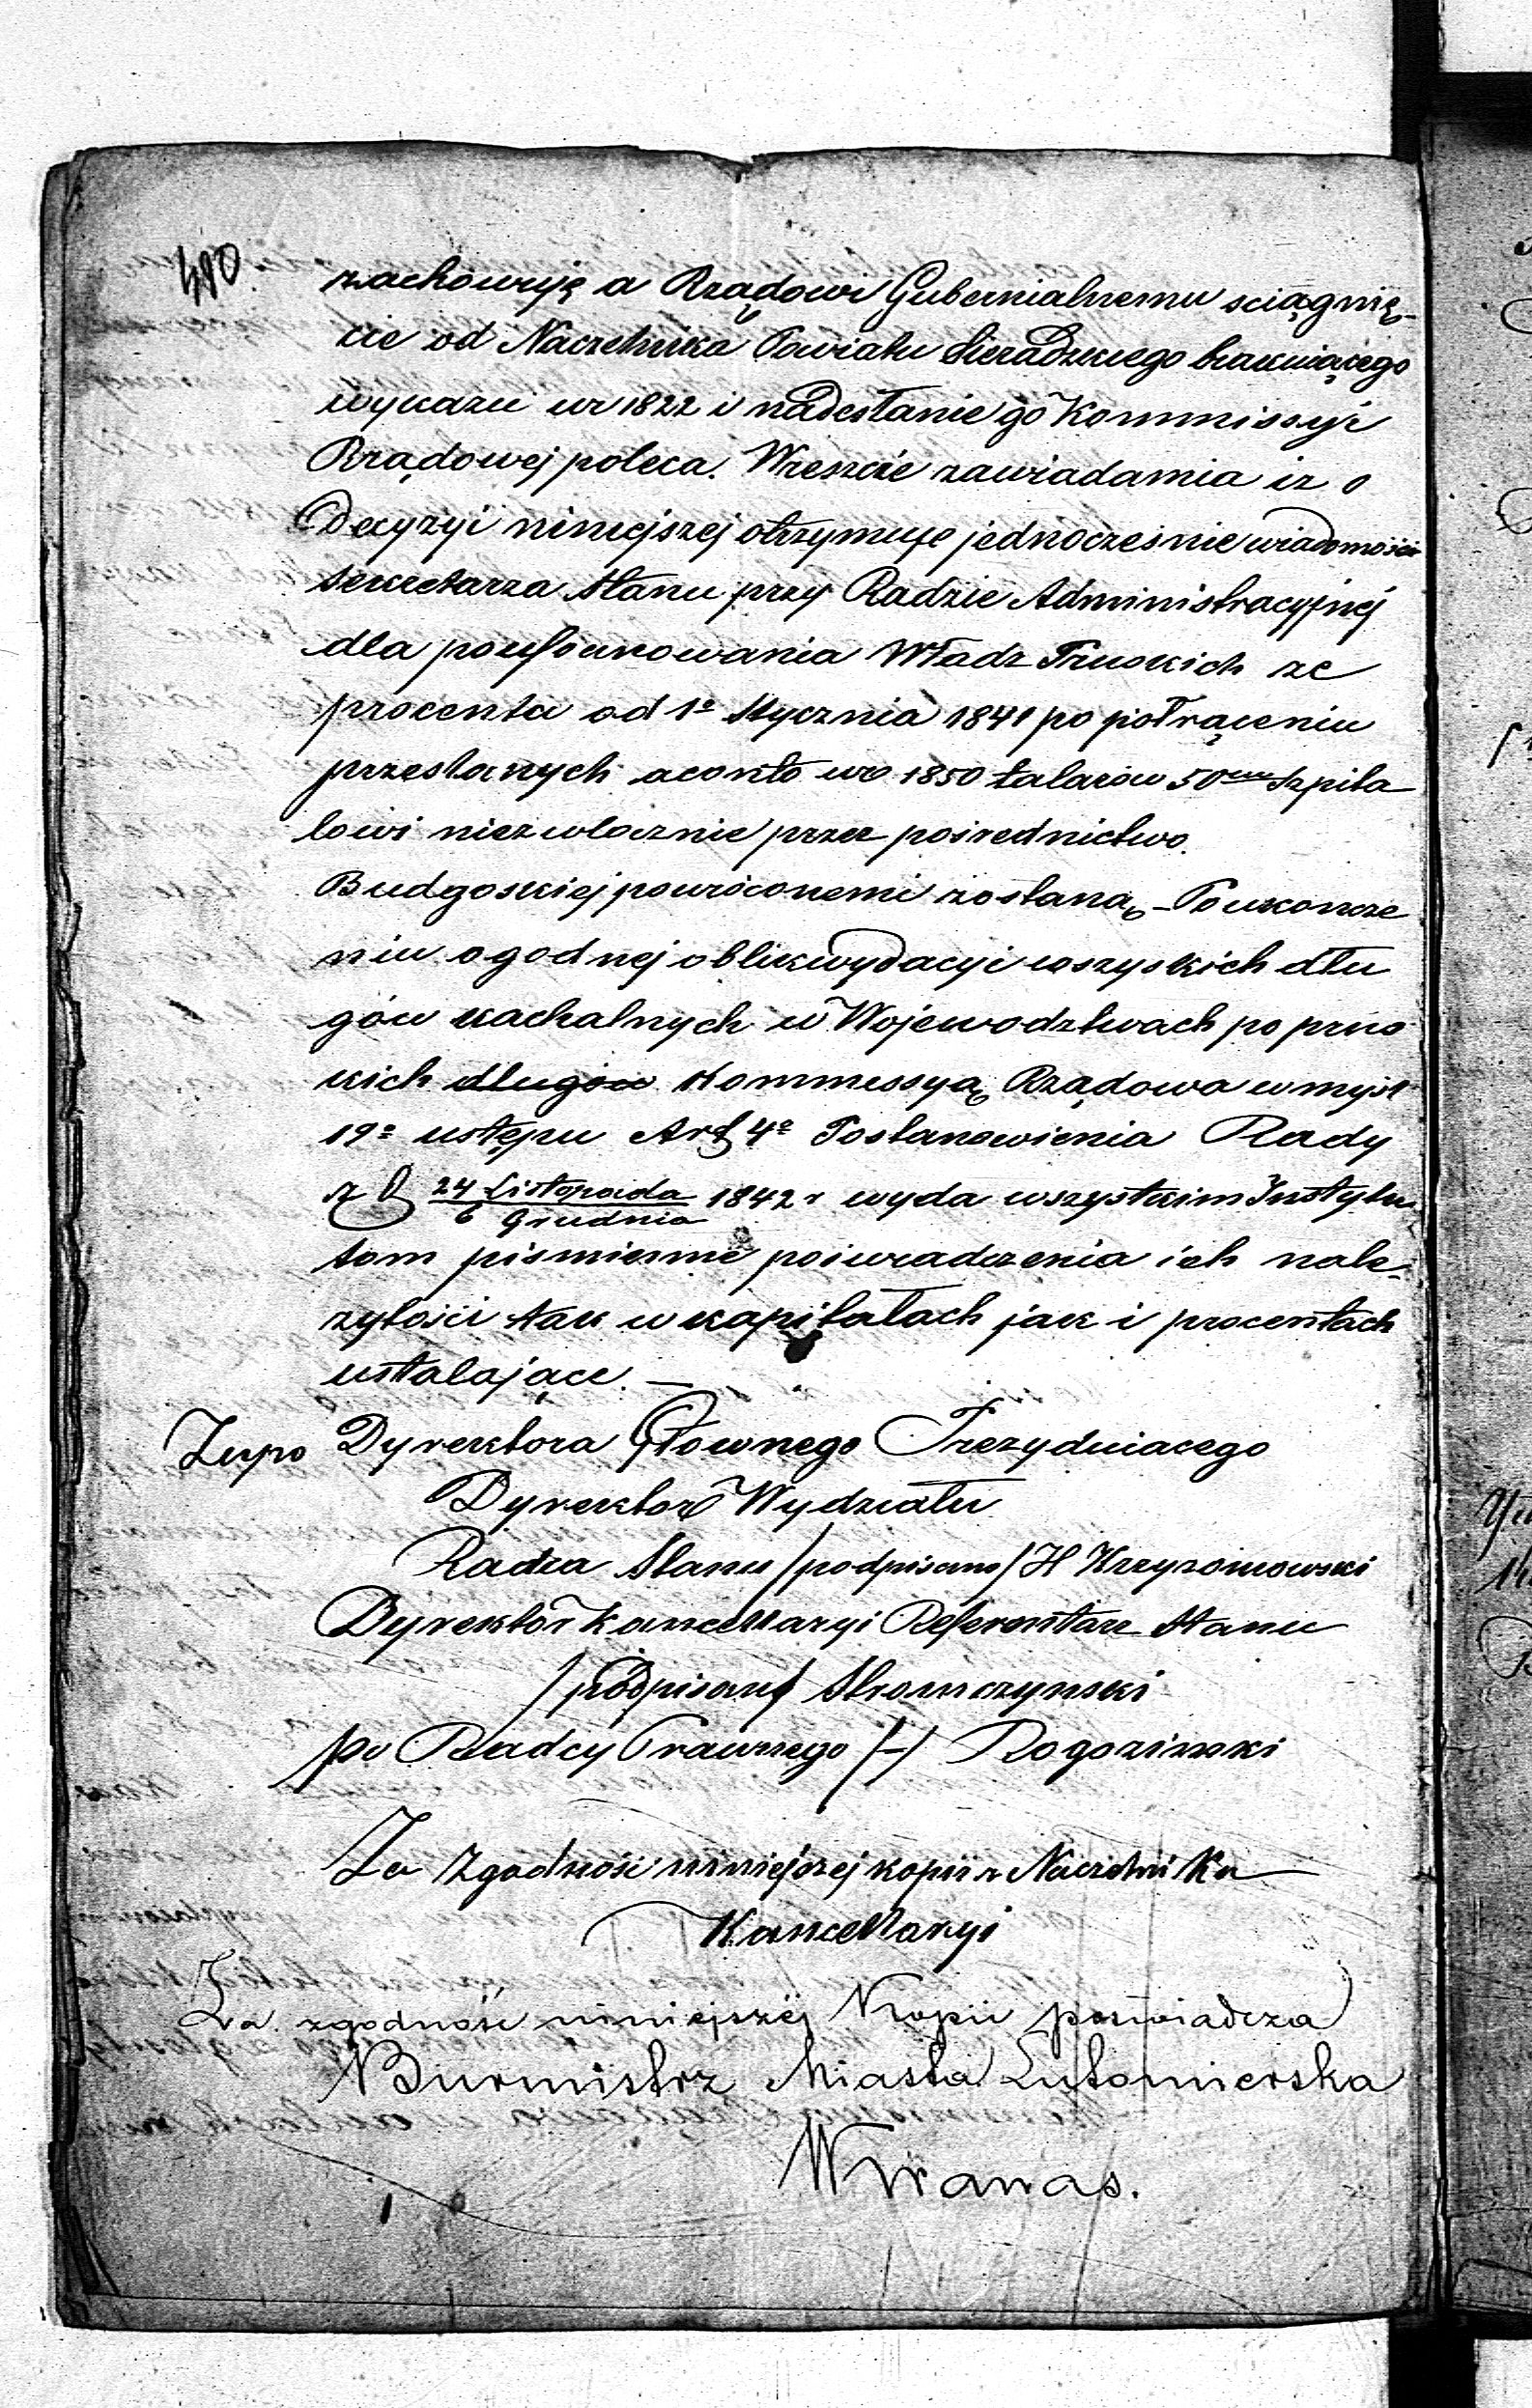 480.
zachowuję a Rządowi Gubernialnemu sciągnię-
cie od Naczelnika Powiatu Sieradzkiego brakuiącego
wykazu w 1822 i nadesłanie go Kommissyi
Rządowej poleca. Wreszcie zawiadamia iz o
Decyzyi niniejszej otrzymuje jednoczesnie wiadomości
sekretarza Stanu przy Radzie Administracyjnej
dla poufórkowania Władz Pruskich ze
procenta od 1º Stycznia 1841 po potrąceniu
przesłanych aconto w 1850 talarow 50 Szpita
lowi niezwlocznie przez pośrednictwo.
Budgoskiej powróconemi zostaną - Po ukoncze
niu ogodnej oblikwydacyi wszyskich dłu
gów kachalnych w Wojewodztwach po prus
kich długów Kommessyą Rządowa w mysl
19º ustępu Art 4º Postanowienia Rady
z d 24 Listopada 1842 r wyda wszystkim Instytu
6 Grudnia
tom pismienne poiwradczenia ich nale-
zytości tak w kapitałach jak i procentach
ustalające. —
Zupo Dyrektora Głownego Prezyduiacego
Dyrektor Wydziału
Radca Stanu /podpisano/ H Krzyzoniowski
Dyrektor Kancellaryi Referentarz Stanu
/podpisany/ Stromczynski
po Radcy Prawnego /-/ Rogozinski
Za Zgodność niniejszej kopii n Naczelnika
Kancellaryi
Za zgodność niniejszéj Kopii poswiadcza
Burmistrz Miasta Lutomierska
W Wranas.